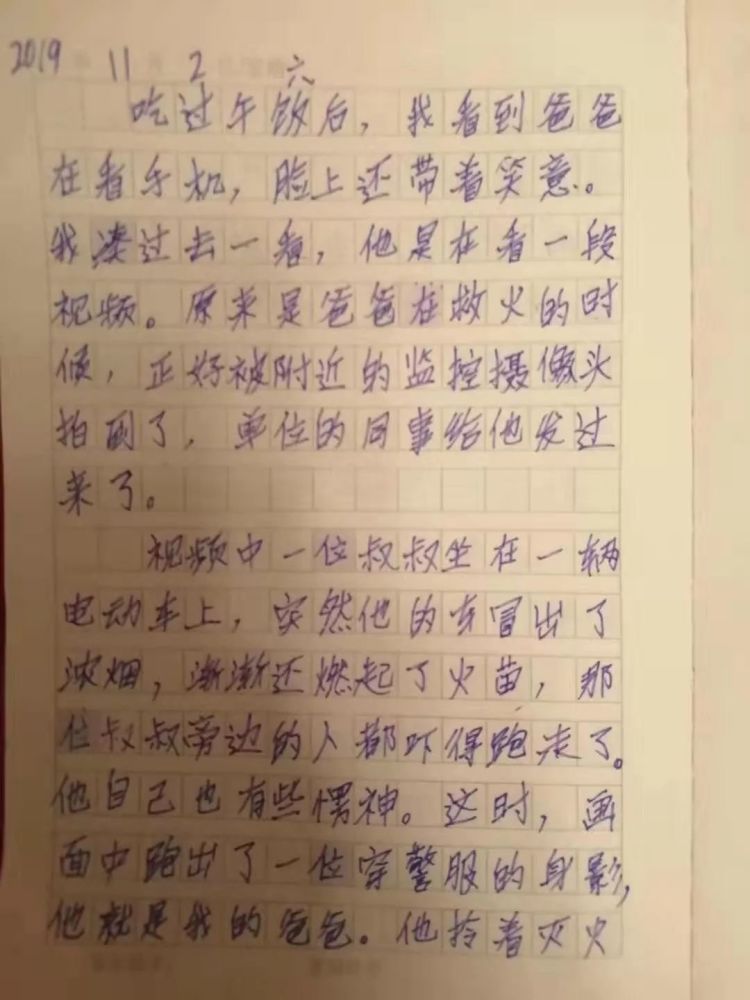 2019 年 11 月 2 日 六
吃过午饭后，我看到爸爸
在看手机，脸上还带着笑意。
我凑过去一看，他是在看一段
视频。原来是爸爸在救火的时
候，正好被附近的监控摄像头
拍到了，单位的同事给他发过
来了。
视频中一位叔叔坐在一辆
电动车上，突然他的车冒出了
浓烟，渐渐还燃起了火苗，那
位叔叔旁边的人都吓得跑走了。
他自己也有些愣神。这时，画
面中跑出了一位穿警服的身影，
他就是我的爸爸。他拎着灭火